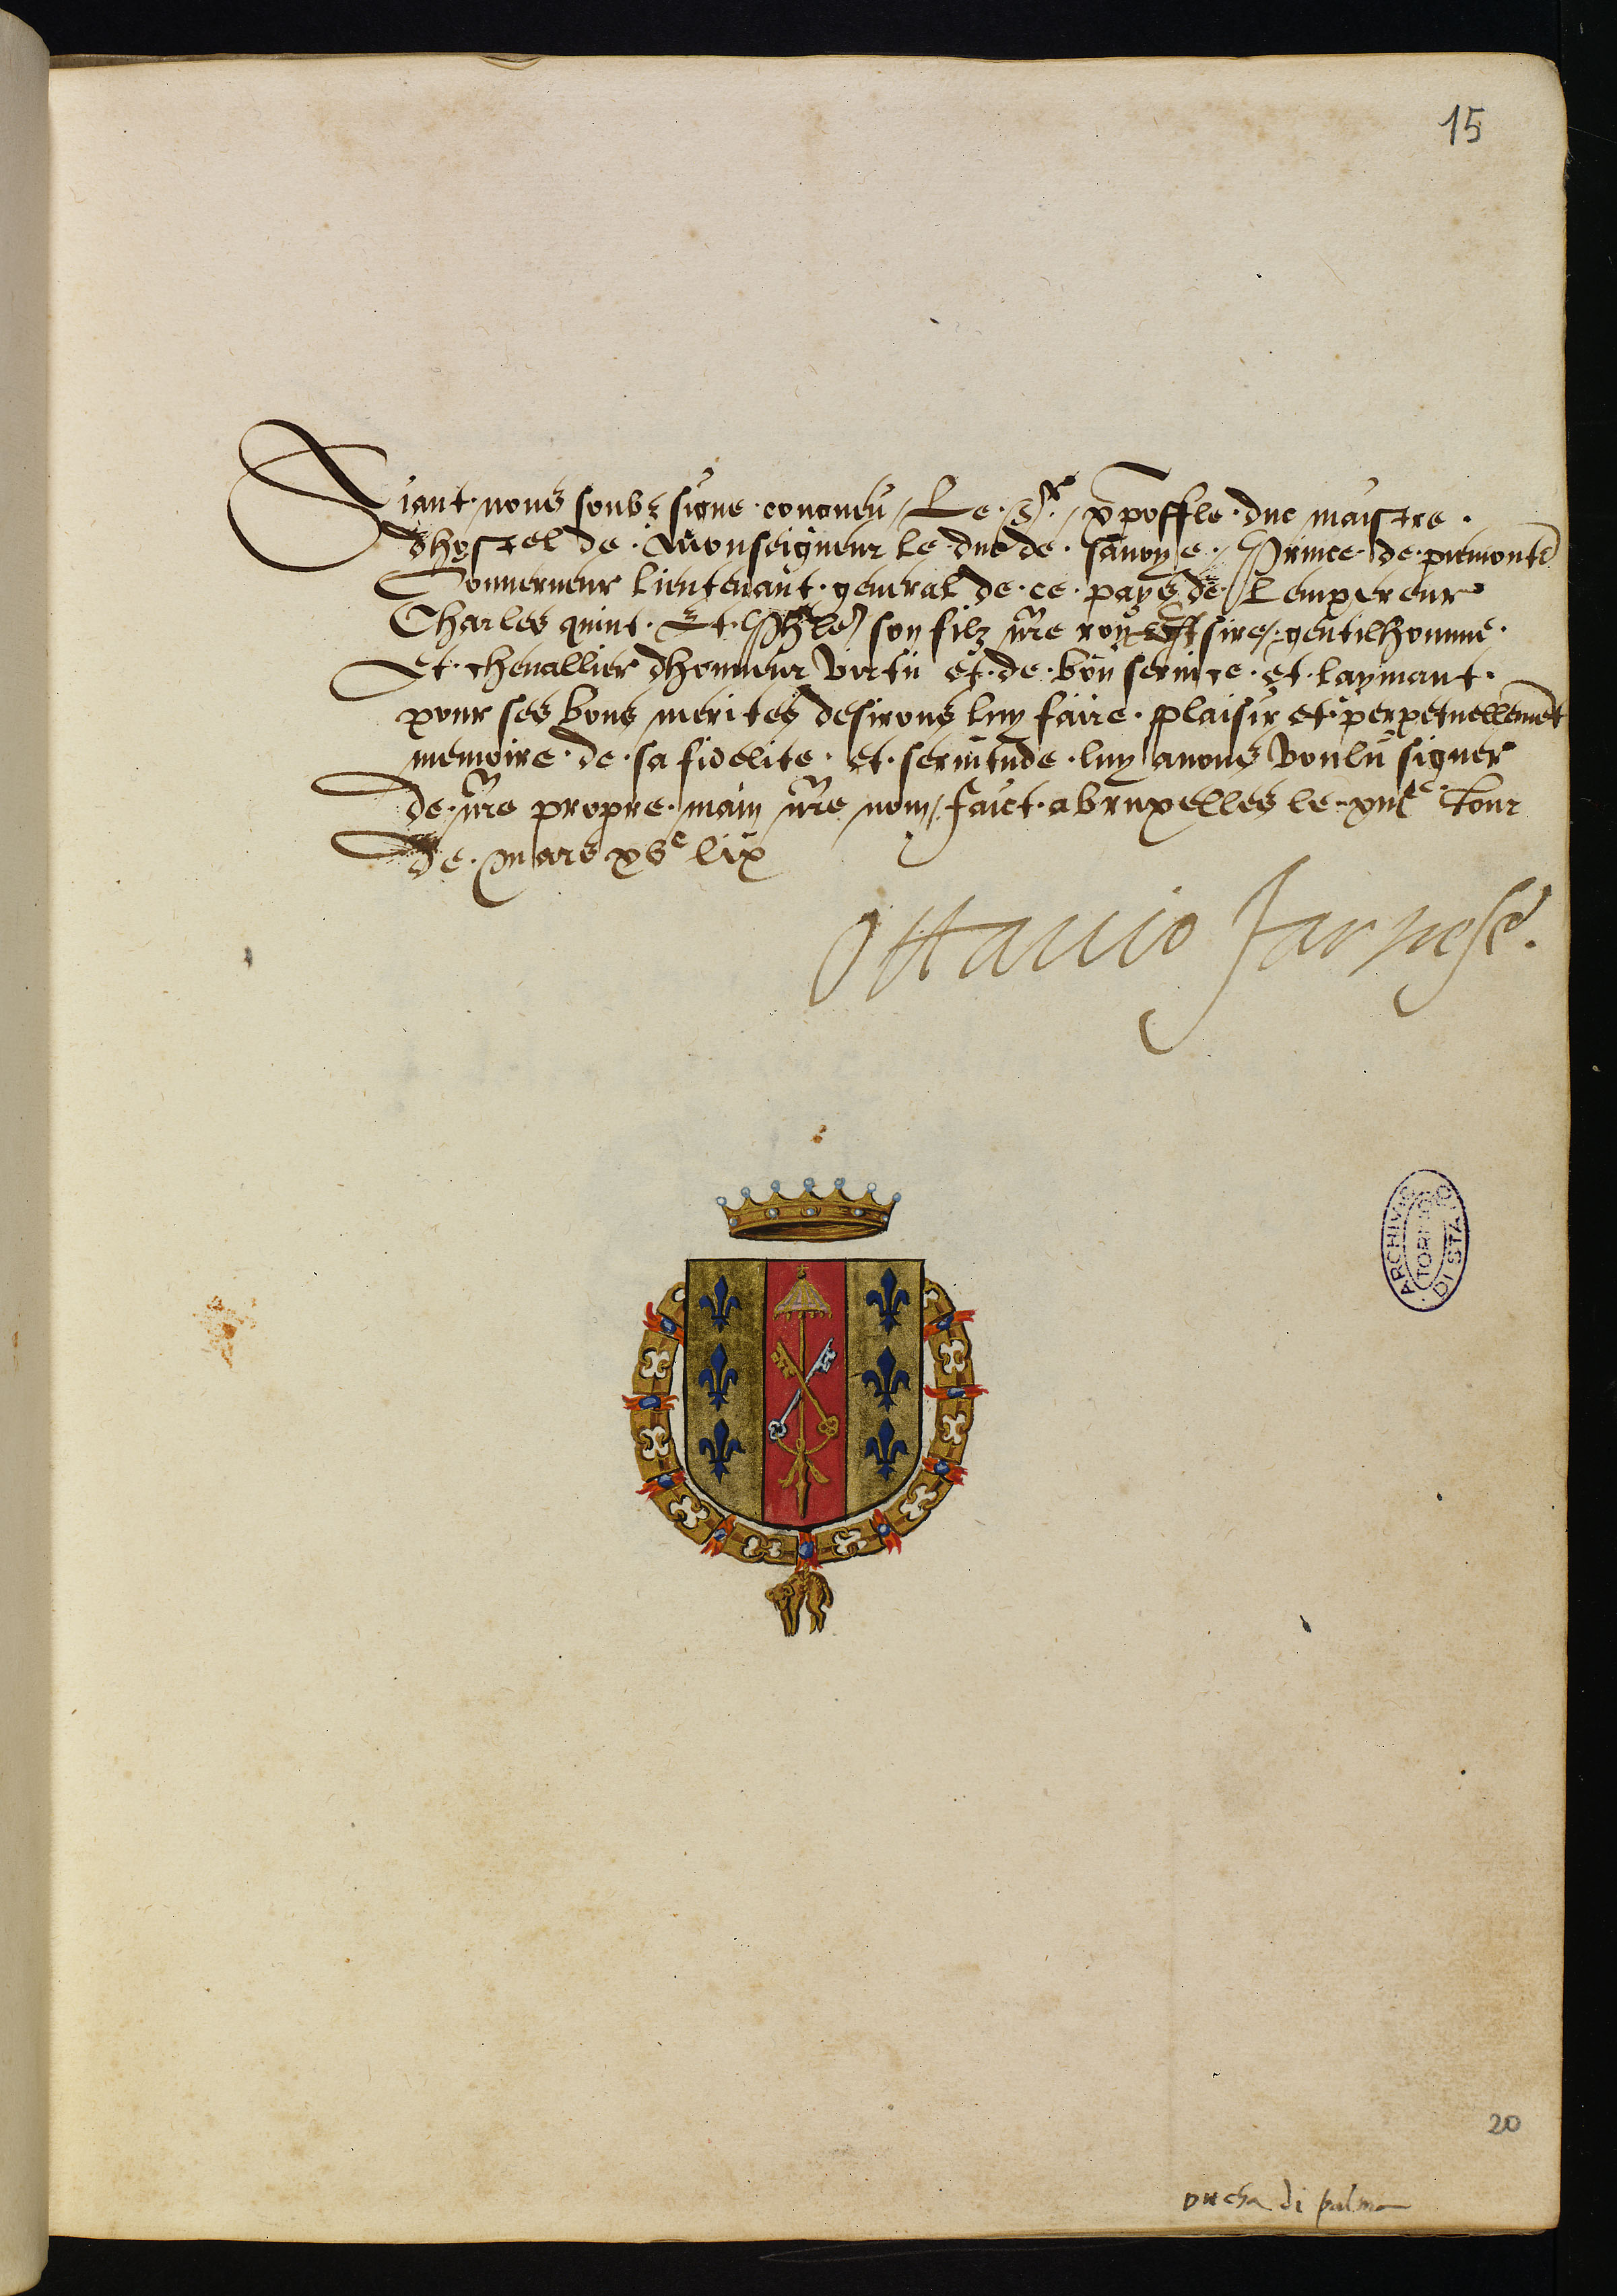 15
Aiant · nous soubz signe · congneu / Le · Sr · / xpoffle · duc maistre ·
dhostel de · Monseigneur le · duc de · savoye · / Prince · de · piemont
Gouverneur lieutenant · general de · ce · pays de / Lempereur
Charles quint · Et · Phle son filz nre roy sire / · gentilhomme ·
Et · chevallier dhonneur virtu et · de · bon service · et · laymant ·
pour ses bons merites desirons luy faire · plaisir et · perpetuellement
memoire · de · sa fidelite · et · servitude · luy avons voulu signer
de · nre propre · main nre nom / faict · a bruxelles le · Iour
De · mars xve lix
Ottavio Farnese.
ARCHIVIO DI STATO
TORINO
20
ducha di palma